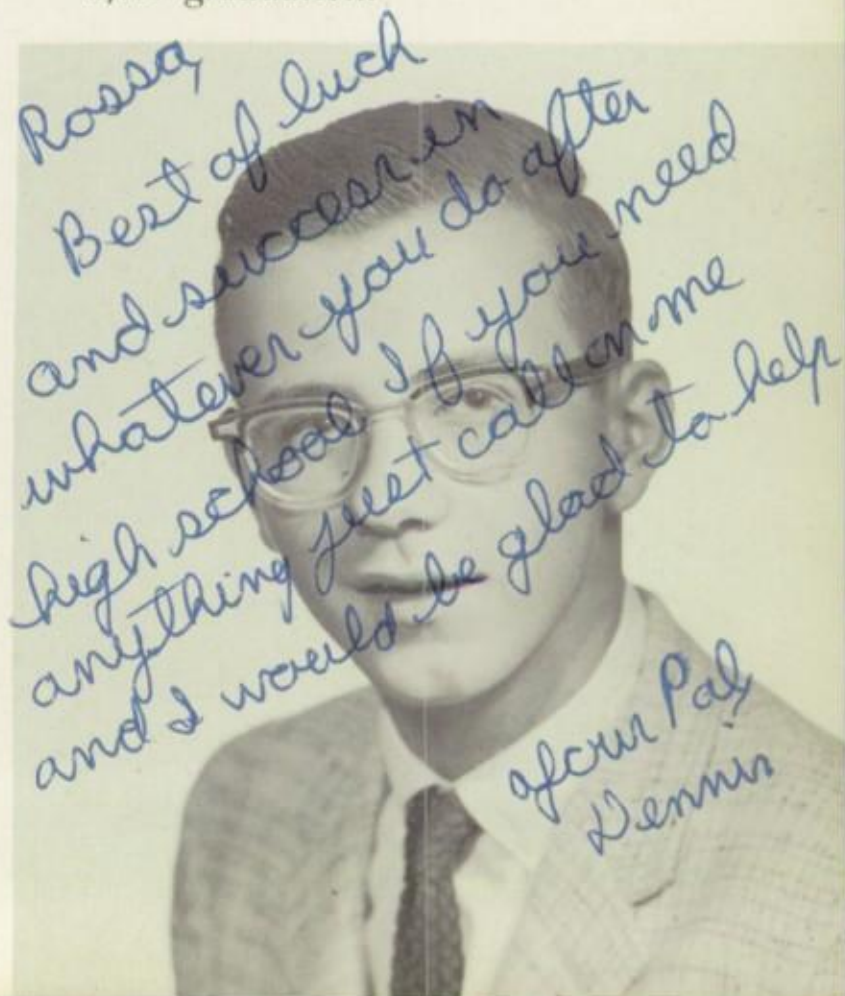 Rossa,
Best of luck
and success in
whatever you do after
high school. If you need
anything just call on me
and I would be glad to help
Your Pal,
Dennis